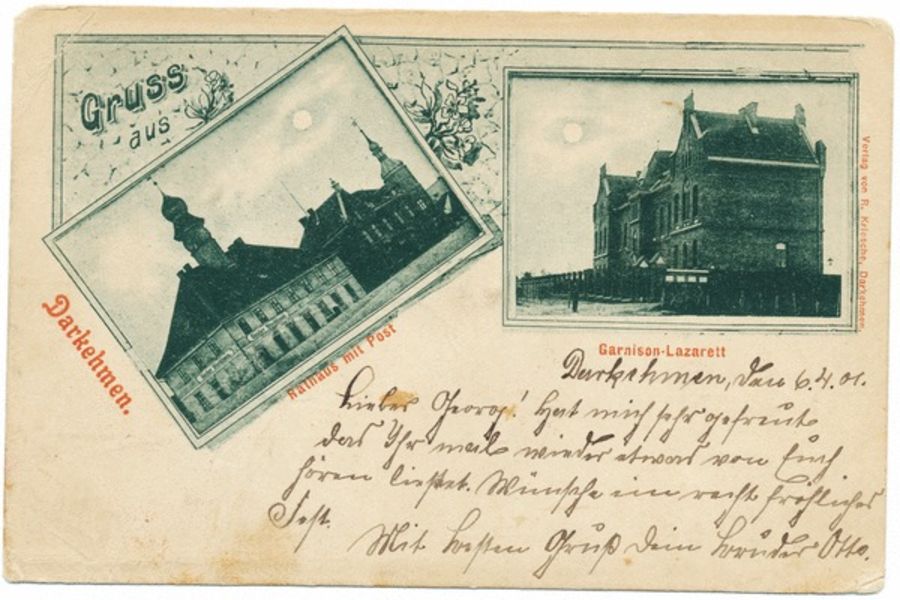 Gruss
aus
Darkehmen.
Rathaus mit Post
Garnison-Lazarett
Verlag von R. Kriesche, Darkehmen
Darkehmen, den 6.4.01.
Lieber Georg! Hat mich sehr gefreut
das Ihr mal wieder etwas von Euch
hören ließet. Wünsche ein recht fröhliches
Fest.
Mit besten Gruß Dein Bruder Otto.